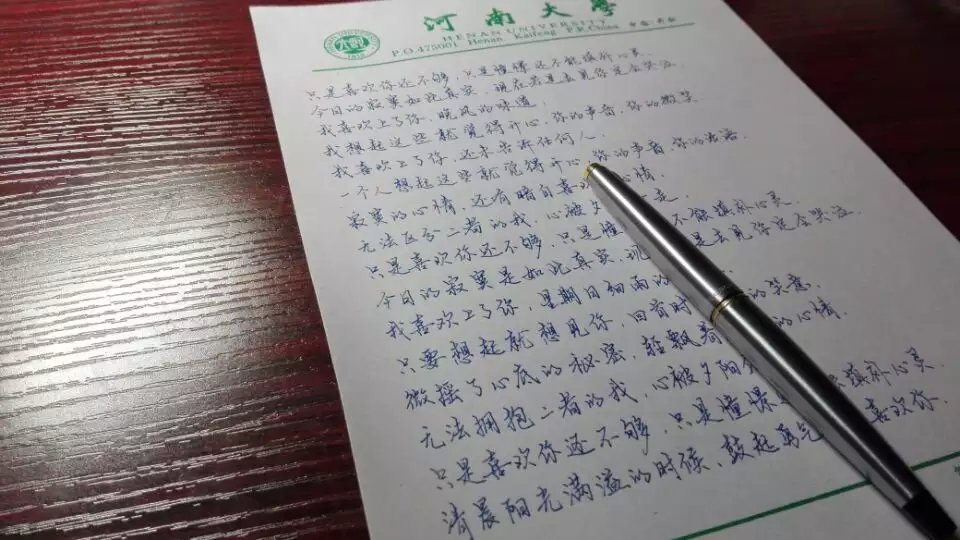 河南大学
HENAN UNIVERSITY
P.O.475001 Henan Kaifeng P.R.China
只是喜欢你还不够,只是憧憬还不能填补心灵.
今日的寂寞如此真实,现在若是去见你定会哭泣.
我喜欢上了你,晚风的味道.
我想起这些就觉得开心,你的声音,你的微笑.
我喜欢上了你,还未告诉任何人.
一个人想起这些就觉得开心,你的声音,你的
寂寞的心情,还有暗自喜 心情.
无法区分二者的我,心被夕 走.
只是喜欢你还不够,只是憧 不能填补心灵.
今日的寂寞是如此真实,现 是去见你定会哭泣.
我喜欢上了你,星期日细雨的
只要想起就想见你,回首时 的笑意.
微摇了心底的秘密,轻飘着 的心情.
无法拥抱二者的我,心被夕阳
只是喜欢你还不够,只是憧憬 填补心灵.
清晨阳光满溢的时候,鼓起勇气 喜欢你.